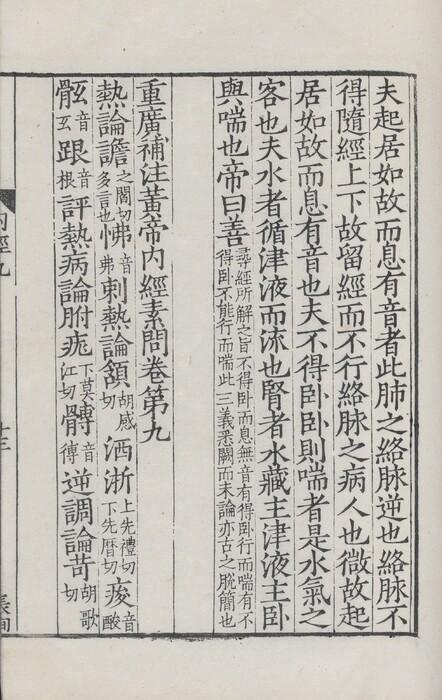 夫起居如故而息有音者此肺之絡脉逆也絡脉不
得隨經上下故留經而不行絡脉之病人也微故起
居如故而息有音也夫不得卧卧則喘者是水氣之
客也夫水者循津液而流也腎者水藏主津液主卧
與喘也帝曰善尋經所解之旨不得卧而息無音有得卧行而喘有不
得卧不能行而喘此三義悉闕而未論亦古之脫簡也
重廣補注黃帝內經素問卷第九
熱論譫之閻切多言也怫音弗刺熱論頷胡感切洒浙上先禮切下先曆切痠音酸
胘音玄跟音根評熱病論胕痝下莫江切髆音博逆調論苛胡歌切
內經九
十三